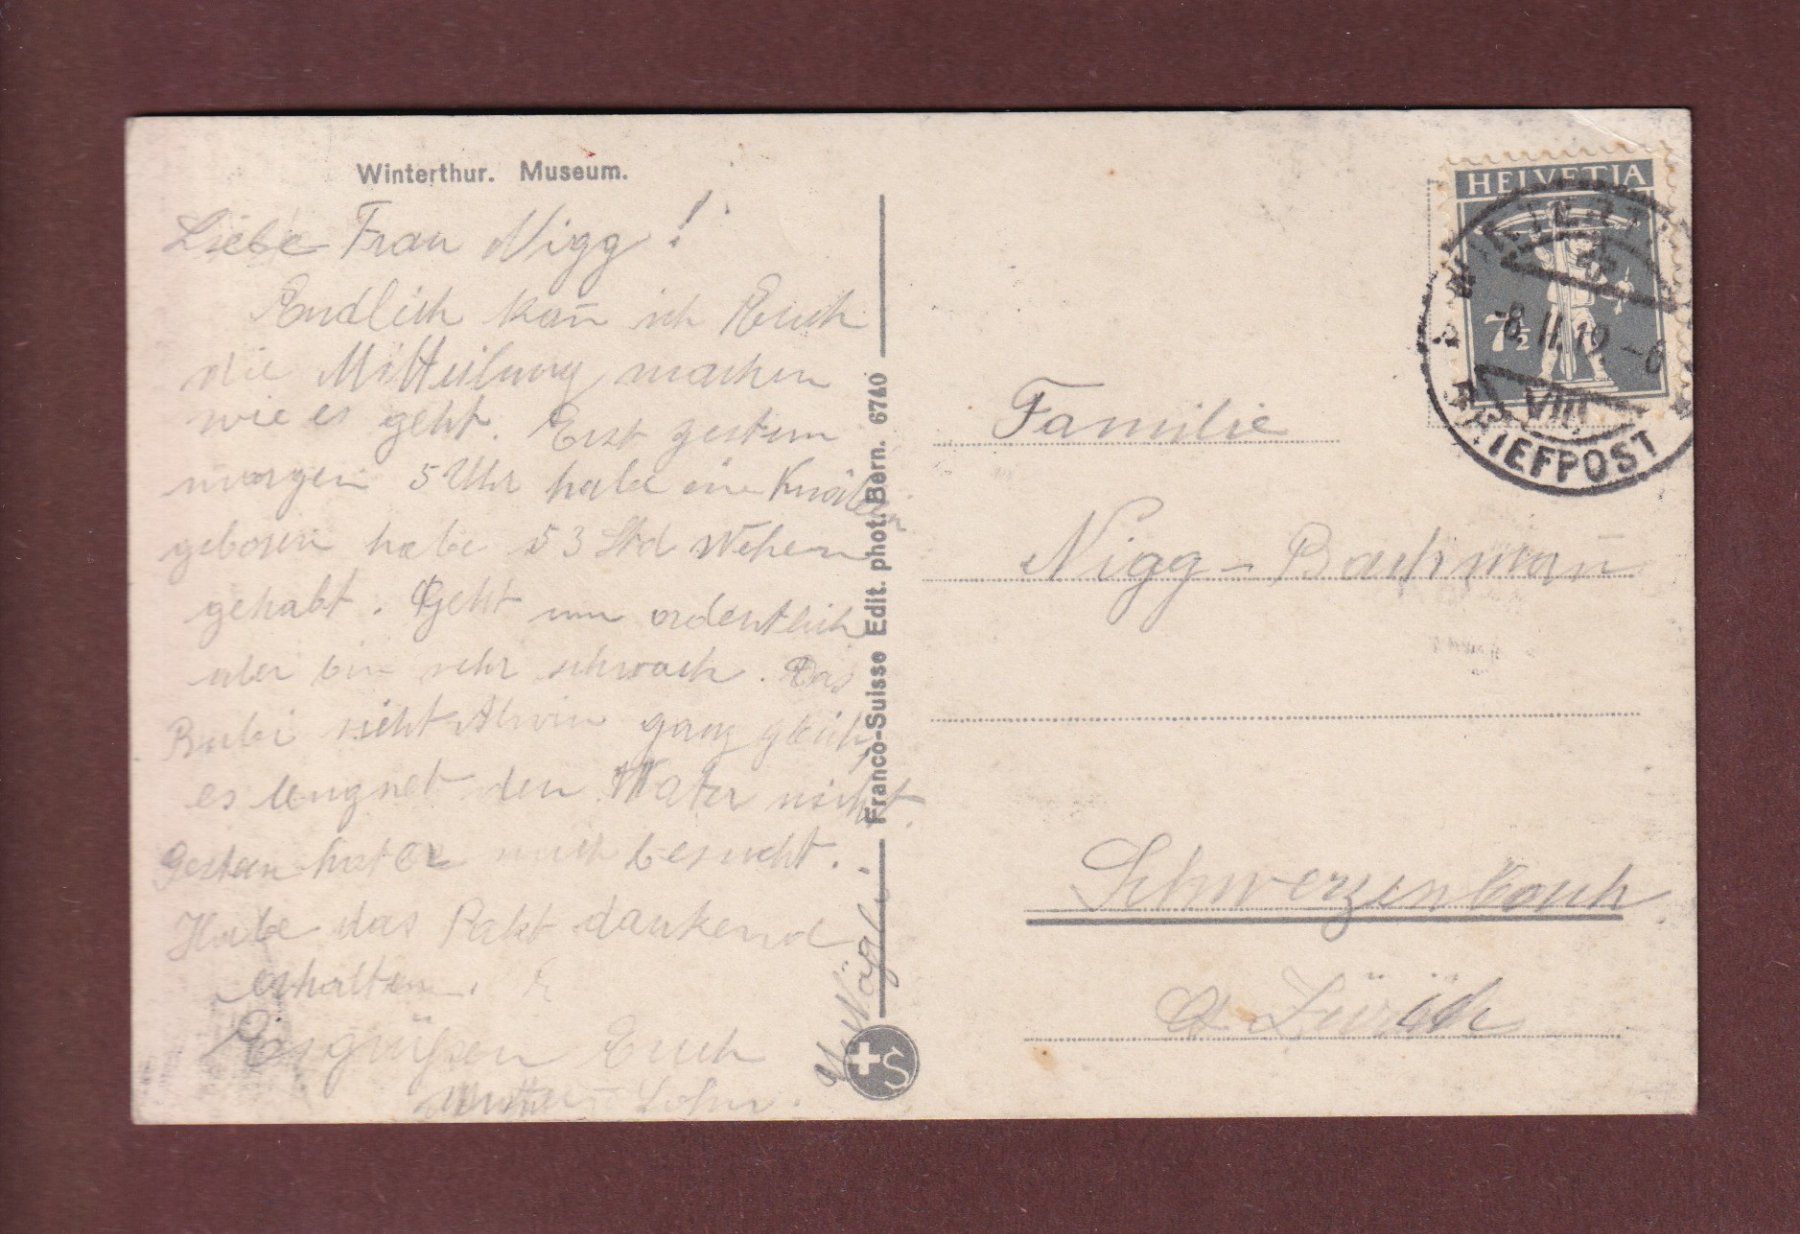 Winterthur. Museum.
Liebe Frau Nigg!
Endlich kan̄ ich Euch
die Mitteilung machen
wie es geht. Erst gestern
morgen 5 Uhr habe ein Knäblein
geboren habe 53 Std Wehen
gehabt. Geht nun ordentlich
aber bin sehr schwach. Das
Bubi sieht Alwin ganz gleich,
es leugnet den Vater nicht.
Gestern hat er mich besucht.
Habe das Pakt dankend
erhalten.
Es grüßen Euch
Mutter u Sohn.
Nägeli
Franco-Suisse Edit. phot. Bern. 6740
S
HELVETIA
7½
-8.II.19-6
VIII
BRIEFPOST
Familie
Nigg-Bachman̄
Schwerzenbach
Zürich